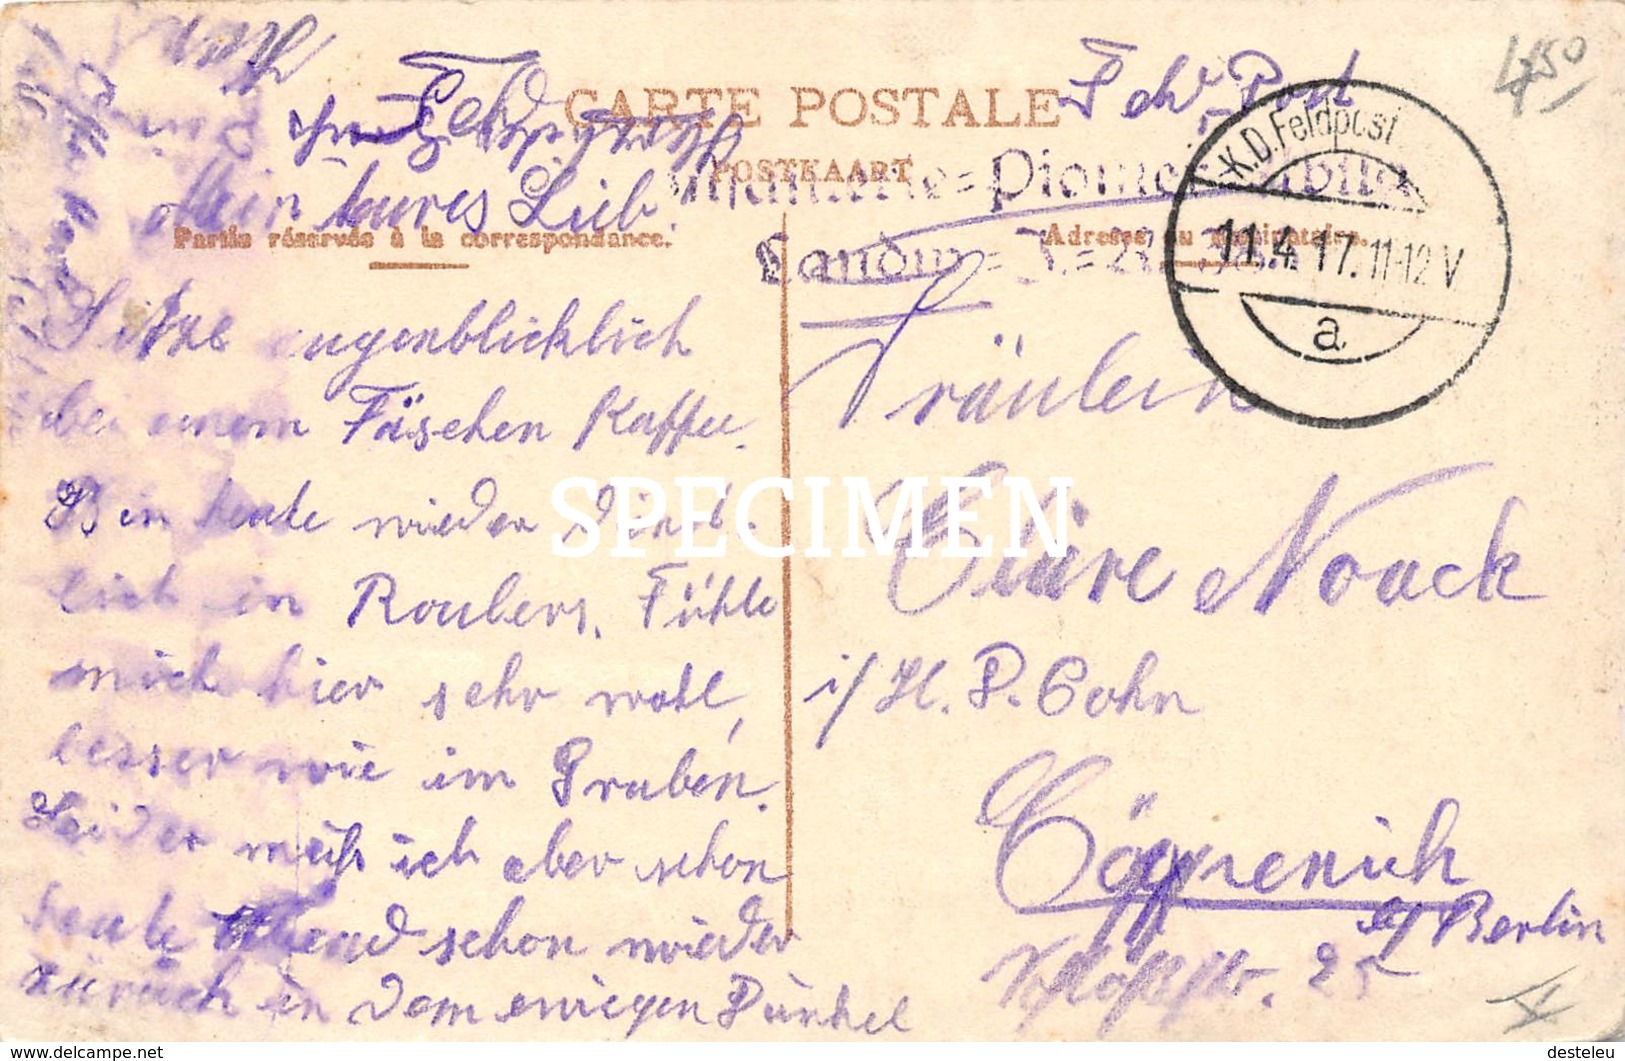 4,50
Feld Post
CARTE POSTALE
POSTKAART
K.D. Feldpost
11.4.17. 11-12 V
a
Mein teures Lieb.
Partie réservée à la correspondance.
Adresse du destinataire.
Infanterie=Pionier
Landw.=I.=R.
Sitze augenblicklich
bei einem Täschen Kaffee.
Bin heute wieder dienst-
lich in Roulers. Fühle
mich hier sehr wohl,
besser wie im Graben.
Leider muß ich aber schon
heute Abend schon wieder
zurück in dem ewigen Dunkel
Fräulein
Cläre Noack
i/ H. P. Cohn
Cöpenick
b/ Berlin
Schloßstr. 25
SPECIMEN
desteleu